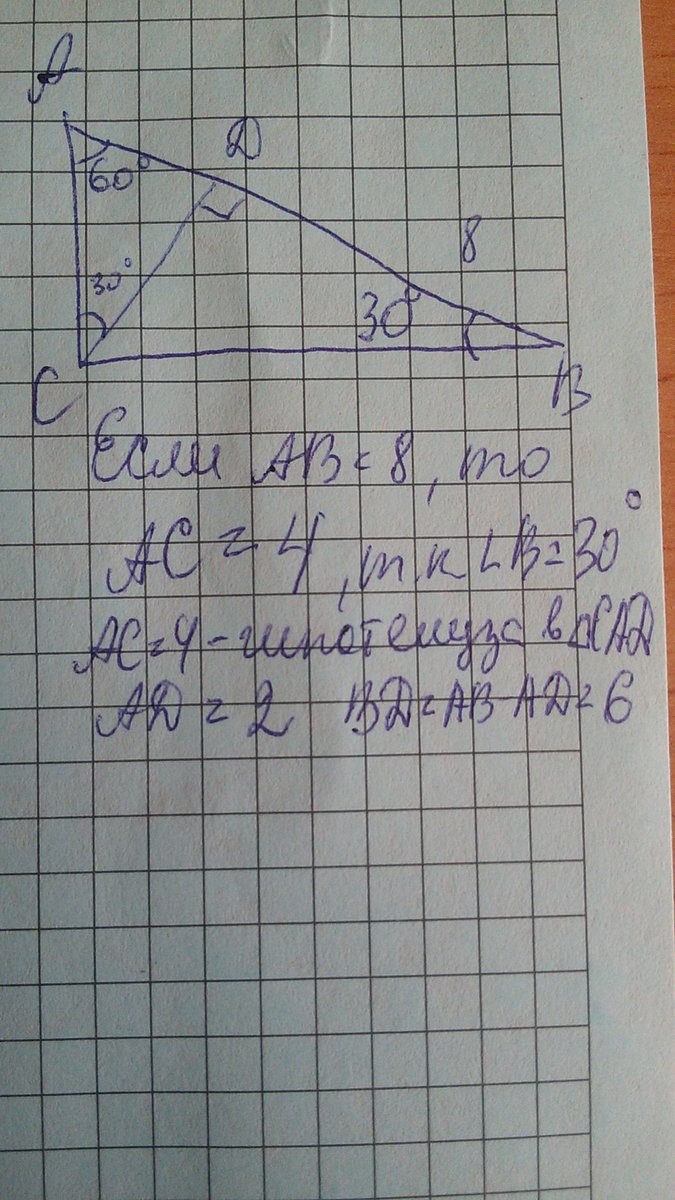 A
D
60°
8
30°
30°
C
B
Если AB = 8, то
AC = 4, т.к ∠B = 30°
AC = 4 - гипотенуза в △CAD
AD = 2 BD = AB - AD = 6